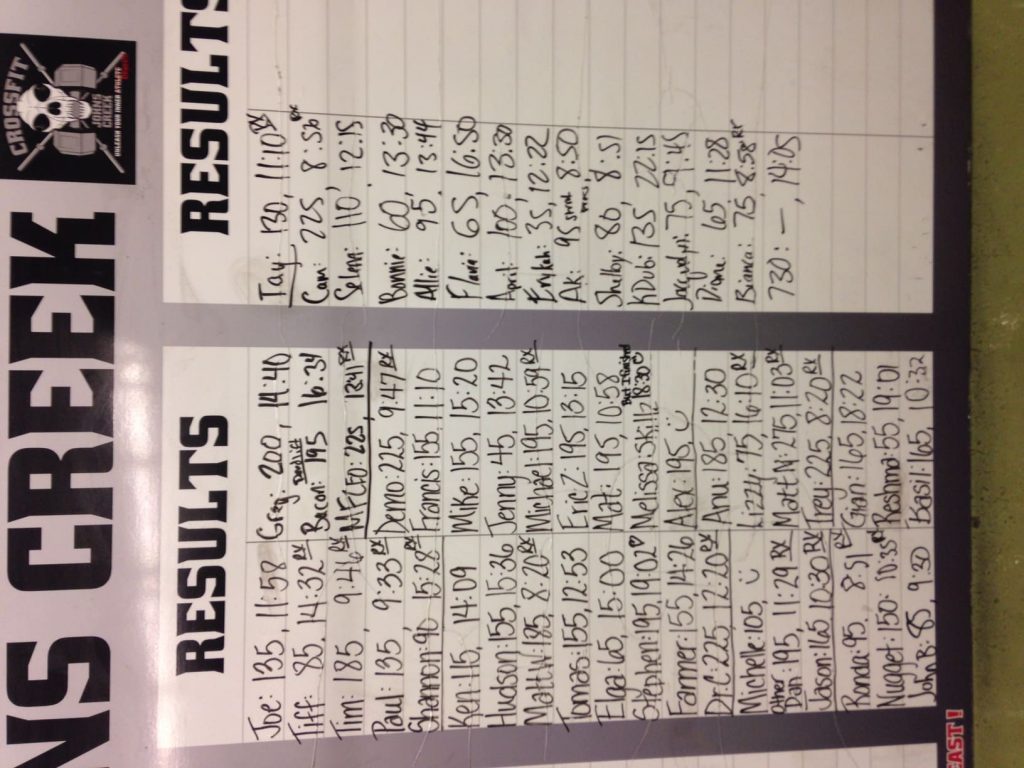 NS CREEK
CROSSFIT
JOHNS CREEK
UNLEASH YOUR INNER ATHLETE
RESULTS
Joe: 135, 11:58
Tiff: 85, 14:32 RX
Tim: 185, 9:46 RX
Paul: 135, 9:33 RX
Shannon: 90 15:28
Ken: 115, 14:09
Hudson: 155, 15:36
Matt W: 185, 8:20 RX
Tomas: 155, 12:53
Elga: 65, 15:00
Stephen: 195, 19:02
Farmer: 155, 14:26
Dr C: 225 12:20 RX
Michelle: 105
Other Dan: 195, 11:29 RX
Jason: 165 10:30 RX
Roma: 95, 8:51 RX
Nuget: 150: 10:35
John B: 85, 9:30
Greg: 200, 14:40
Bacon: 195 16:34
McFLEO: 225, 13:41 RX
Demo: 225, 9:47 RX
Francis: 155, 11:10
Mike: 155, 15:20
Jenny: 45, 13:42
Michael: 195, 10:59 RX
Eric Z: 195, 13:15
Matt: 195, 10:58
Melissa SK: 112 But I finished 18:30
Alex: 195,
Anu: 185, 12:30
Lizzy: 75, 16:10 RX
Matt N: 275, 11:03 RX
Trey: 225, 8:20 RX
Gian: 165, 18:22
Reshma: 55, 19:01
Basil: 165, 10:32
RESULTS
Tay: 130, 11:10 RX
Cam: 225 8:56
Selena: 110, 12:15
Bonnie: 60, 13:30
Allie: 95, 13:44
Flavi: 65, 16:50
April: 100, 13:30
35, 12:22
AK: 95 8:50
Shelby: 80, 8:51
KDub: 135, 22:15
Jacquelyn: 75, 9:45
Diana: 65, 11:28
Bianca: 75, 8:58 RX
730: —, 14:05
EAST!